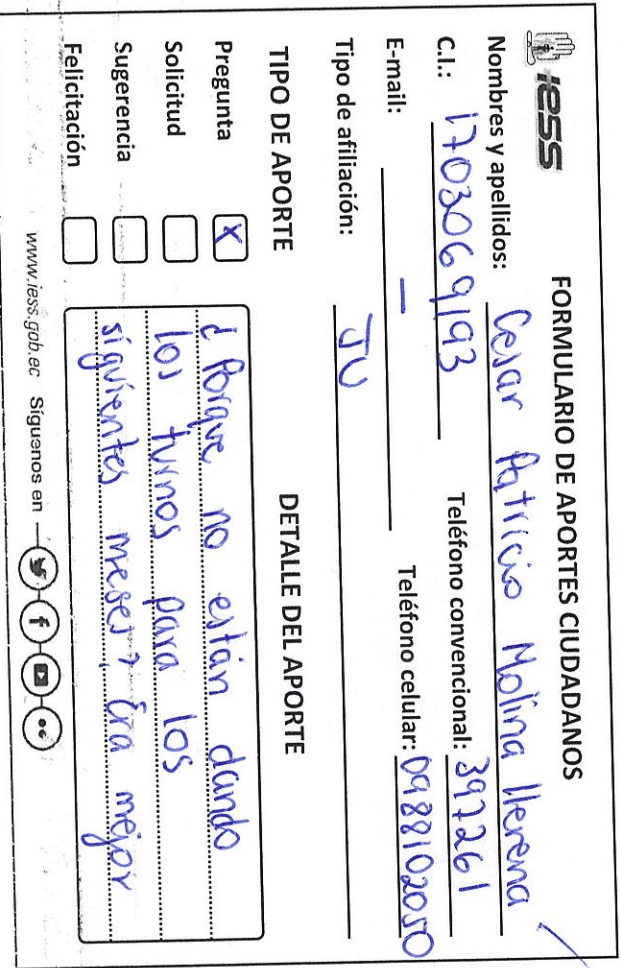 iess
FORMULARIO DE APORTES CIUDADANOS
Nombres y apellidos: Cesar Patricio Molina llerena
C.I.: 1703069193 Teléfono convencional: 397261
E-mail: — Teléfono celular: 0988102050
Tipo de afiliación: JU
TIPO DE APORTE
DETALLE DEL APORTE
Pregunta X
Solicitud
Sugerencia
Felicitación
¿ Porque no están dando
los turnos para los
siguientes meses?, Era mejor
www.iess.gob.ec Síguenos en